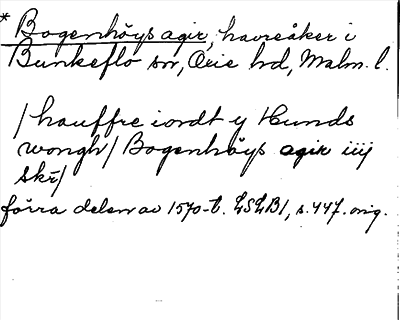 * Bogenhöys agir, havreåker i
Bunkeflo sn, Oxie hd, Malm. l.
/hauffre iordt y Hunds
wongh/ Bogenhöys agir iiij
skr/
förra delen av 1570-t. LSLB1, s. 447. orig.